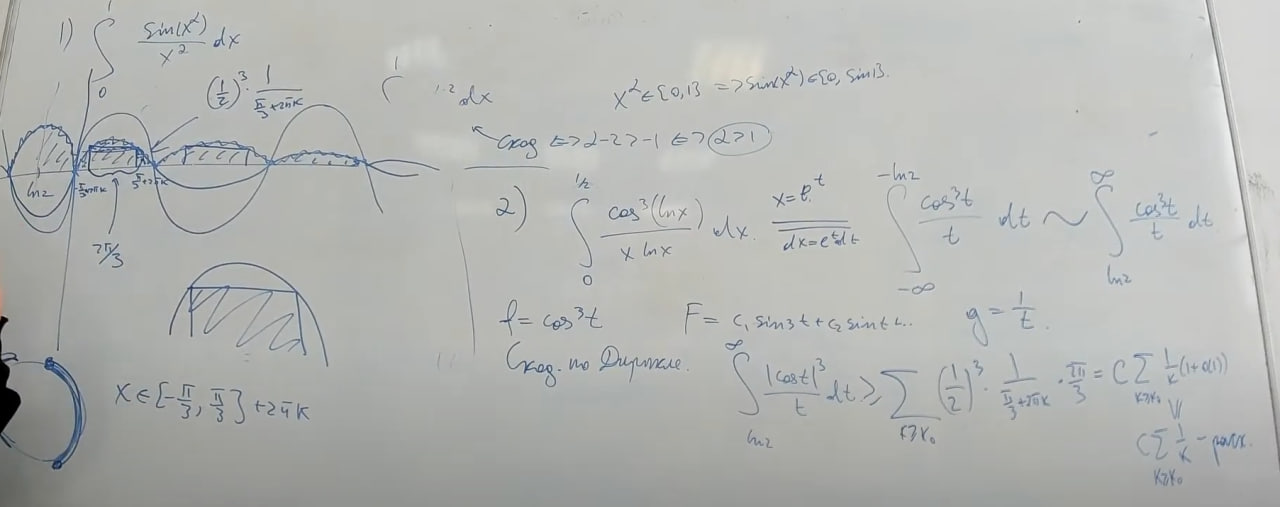 1) ∫_0^1 sin(x²)/x² dx
(1/2)³ · 1/(π/3+2πk)
∫^1 dx
x² ∈ [0,1] => sin(x²) ∈ [0, sin1].
Сход <=> α-2 > -1 <=> α > 1
ln2
π/3+2πk
2π/3
x ∈ [-π/3, π/3] + 2πk
2) ∫_0^{1/2} cos³(lnx)/(x lnx) dx = x=e^t dx=e^t dt ∫_{-∞}^{-ln2} cos³t/t dt ~ ∫_{ln2}^∞ cos³t/t dt
f = cos³t F = c₁ sin3t + c₂ sint +.. g = 1/t.
Сход. по Дирихле.
∫_{ln2}^∞ |cost|³/t dt ≥ Σ_{k≥k₀} (1/2)³ · 1/(π/3+2πk) · 2π/3 = C Σ_{k≥k₀} 1/k (1+o(1))
C Σ_{k≥k₀} 1/k - расх.